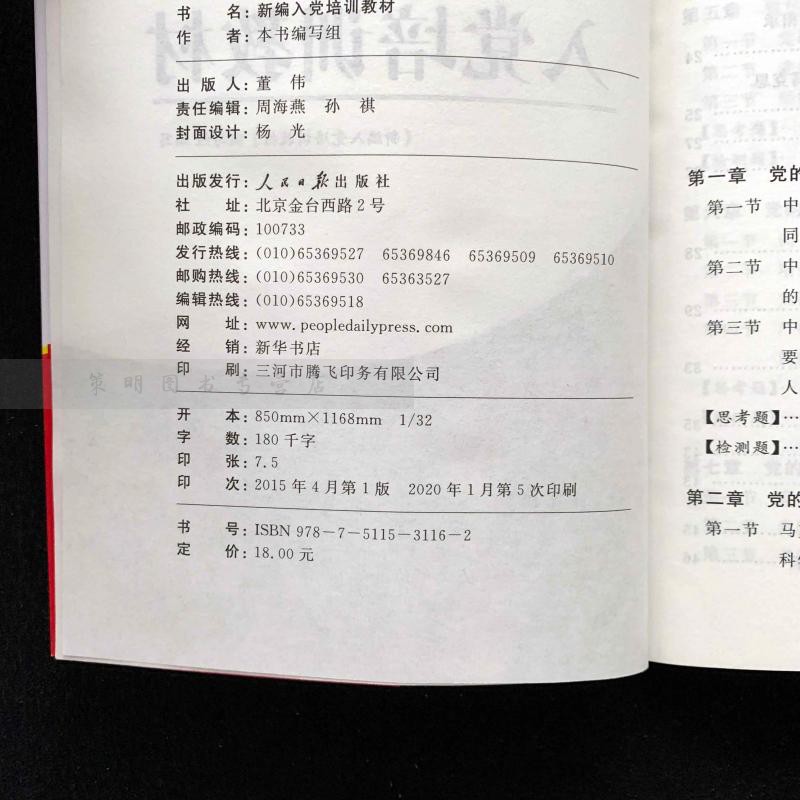 书 名：新编入党培训教材
作 者：本书编写组
出 版 人：董 伟
责任编辑：周海燕 孙 祺
封面设计：杨 光
出版发行：人民日报出版社
社 址：北京金台西路2号
邮政编码：100733
发行热线：(010)65369527 65369846 65369509 65369510
邮购热线：(010)65369530 65363527
编辑热线：(010)65369518
网 址：www.peopledailypress.com
经 销：新华书店
印 刷：三河市腾飞印务有限公司
开 本：850mm×1168mm 1/32
字 数：180千字
印 张：7.5
印 次：2015年4月第1版 2020年1月第5次印刷
书 号：ISBN 978-7-5115-3116-2
定 价：18.00元
第一章 党的
第一节 中
同
第二节 中
的
第三节 中
要
人
【思考题】…
【检测题】…
第二章 党的
第一节 马
科